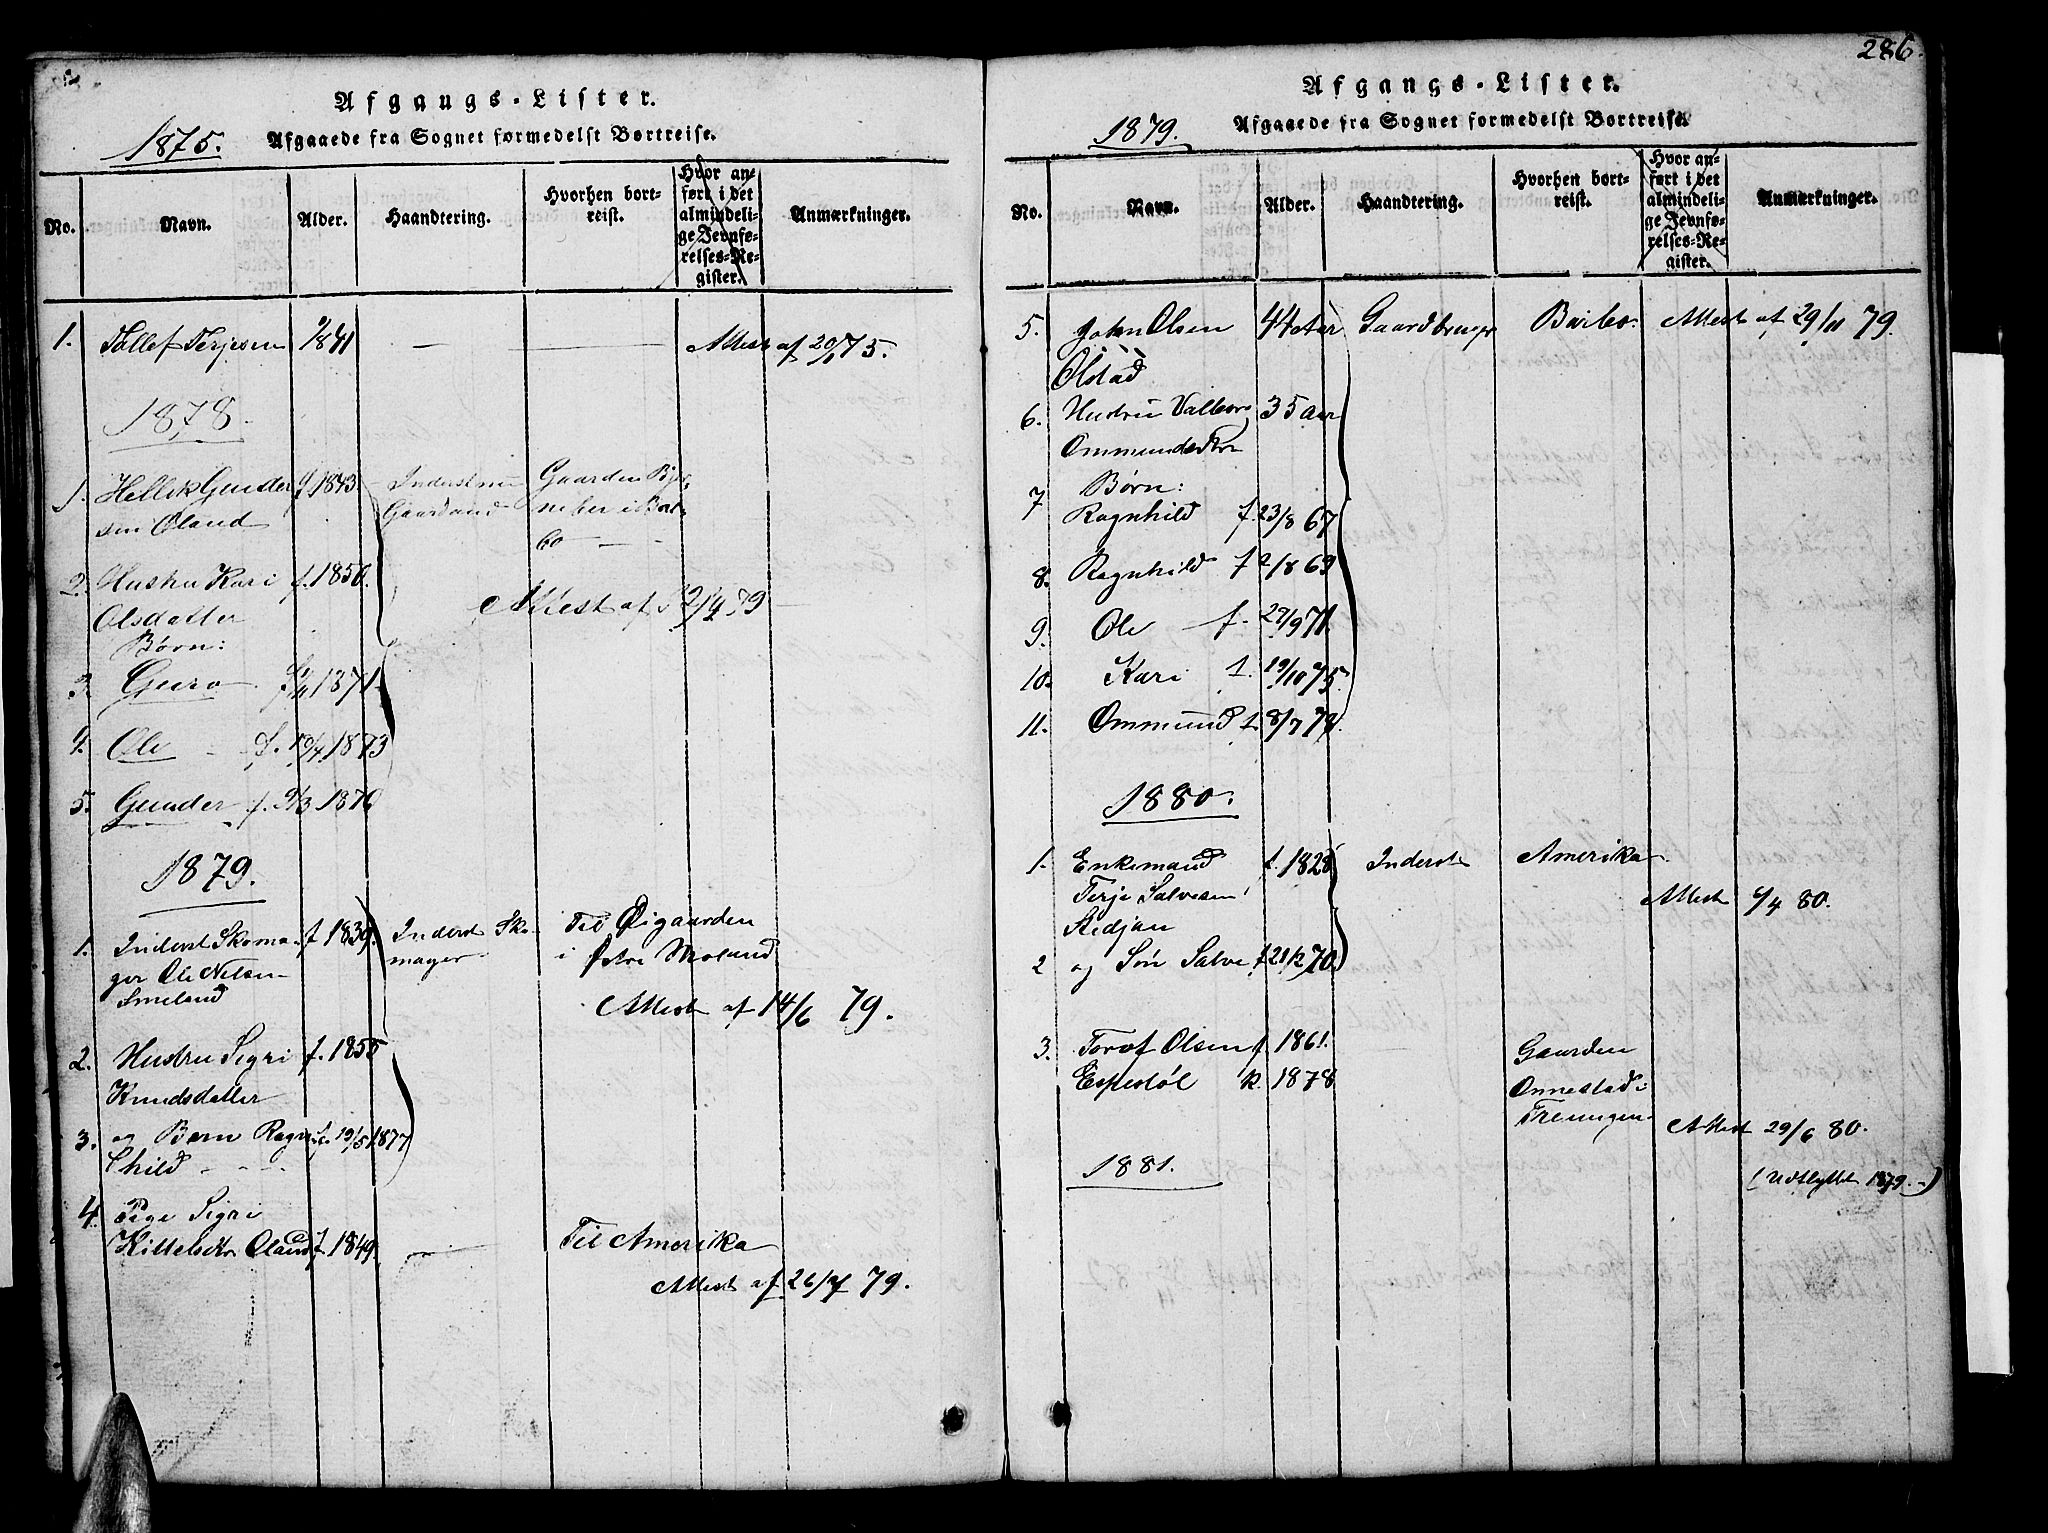 Afgangs-Lister.
1875. Afgaaede fra Sognet formedelst Bortreise.
No. Navn. Alder. Haandtering. Hvorhen bortreist. Hvor anført i det almindelige Jevnførelses-Register. Anmærkninger.
1. Tollef Terjesen 1841 — — Attest af 20/1 75.
1878.
1. Hellik Gunder f. 1843. Inderst Gaarden
sen Øland Gaardmand neber i Bar
bo — —
2. Hustru Kari f. 1850.
Olsdatter Attest af 79 —
Børn:
3. Guro 1871.
4. Ole f. 1873
5. Gunder f. 9/3 1876
1879.
1. Inderst Skoma f 1839. Inderst Sko Til Øigaarden
ger Ole Nilsen mager i Østre Moland
Smeland
Attest af 14/6 79.
2. Hustru Sigri f. 1855
Knudsdatter
3. og Barn Ragn f. 19/5 1877
hild — — —
4. Pige Sigri
Kittelsdtr Øland f 1849. — Til Amerika
Attest af 26/ 79.
286.
Afgangs-Lister.
1879. Afgaaede fra Sognet formedelst Bortreise.
No. Navn. Alder. Haandtering. Hvorhen bortreist. Hvor anført i det almindelige Jevnførelses-Register. Anmærkninger.
5. John Olsen 44 Aar Gaardbruger Barbo. Attest af 29/11 79.
Olstad
6. Hustru Valbor 35 Aar
Ommundsdtr
Børn:
7 Ragnhild f. 23/8 67
8. Ragnhild f 2/8 69
9. Ole f. 29/9 71.
10. Kari f. 19/10 75.
11. Ommund f. 8/7 78.
1880.
1. Enkemand f. 1828 Inderst Amerika
Terje Salvesen
Stedjan Attest 6/4 80.
2 og Søn Salve f 28/12 70.
3. Torof Olsen f. 1861. Gaarden
Espestøl k. 1878 Onnestad i
Treungen Attest 29/6 80.
(Udflyttet 1879.-)
1881.